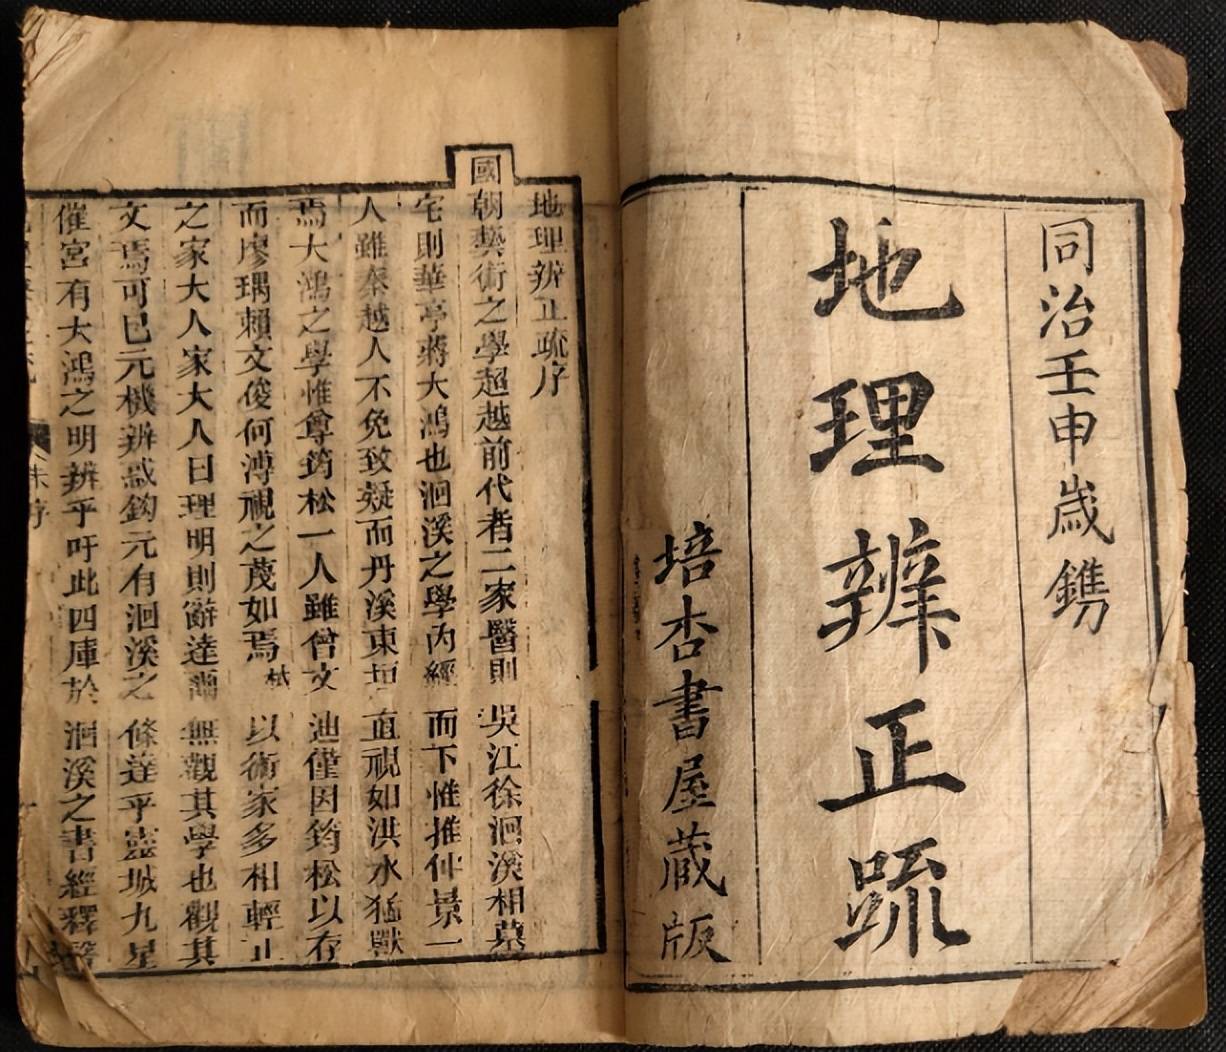 同治壬申歲鐫
地理辨正疏
培杏書屋藏版
地理辨正疏序
國朝藝術之學超越前代者二家醫則吳江徐洄溪相墓
宅則華亭蔣大鴻也洄溪之學內經而下惟推仲景一
人雖秦越人不免致疑而丹溪東垣直視如洪水猛獸
焉大鴻之學惟尊筠松一人雖曾文辿僅因筠松以存
而廖瑀賴文俊何溥視之蔑如焉以術家多相輕
之家大人家大人曰理明則辭達無觀其學也觀其
文焉可已元機辨惑鈎元有洄溪之條達乎靈城九星
催官有大鴻之明辨乎吁此四庫於洄溪之書經釋醫
朱序